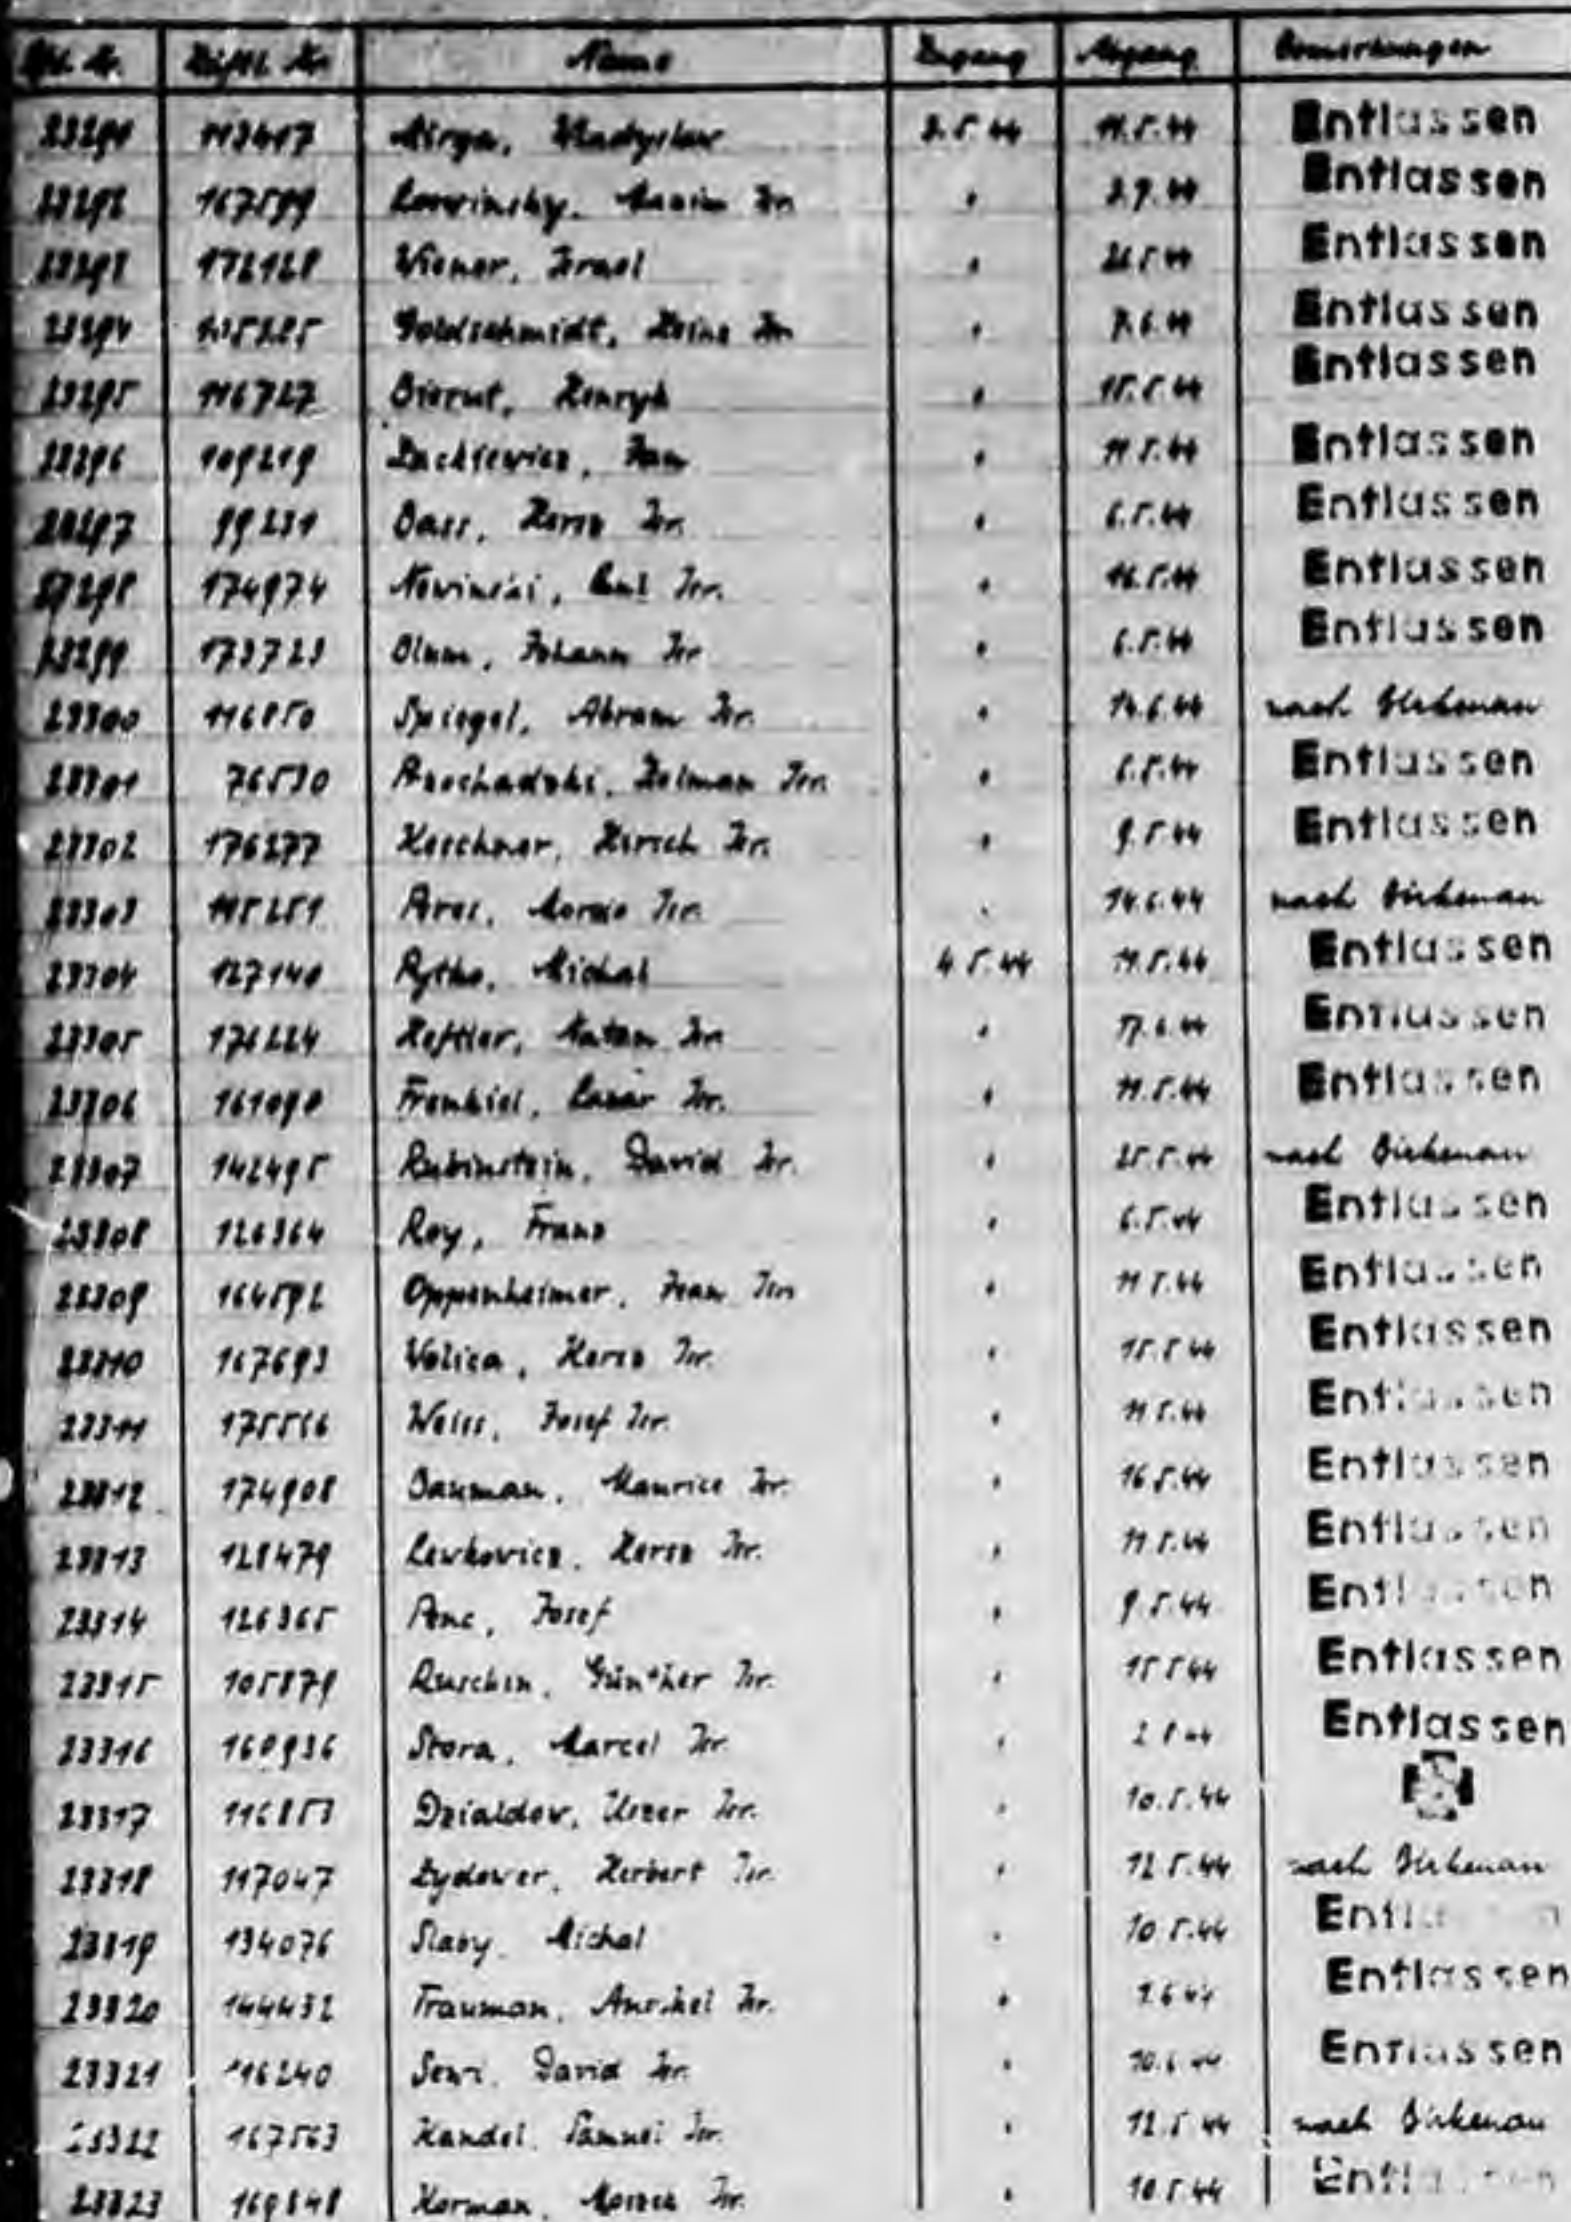 Lfd. Nr. Häftl. Nr. Name Zugang Abgang Bemerkungen
23291 113417 Mirga, Wladyslaw 3.5.44 11.5.44 Entlassen
23292 167599 Maxim Isr. " Entlassen
23293 172128 Wiener, Israel " Entlassen
23294 Goldschmidt, Heinz Isr. " 7.6.44 Entlassen
23295 116727 Bierut, Henryk " 15.5.44 Entlassen
23296 109219 Jan " 11.5.44 Entlassen
23297 99231 Bass, Hersz Isr. " 6.5.44 Entlassen
23298 174974 Nowinski, Isr. " 16.5.44 Entlassen
23299 173723 Blum, Johann Isr. " 6.5.44 Entlassen
23300 116850 Spiegel, Abram Isr. " 14.6.44 nach Birkenau
23301 76530 Isr. " 6.5.44 Entlassen
23302 176277 Kerchner, Hersch Isr. " 9.5.44 Entlassen
23303 Isr. " 14.6.44 nach Birkenau
23304 127140 Rytko, Michal 4.5.44 11.5.44 Entlassen
23305 176224 Heftler, Natan Isr. " 17.6.44 Entlassen
23306 161090 Frenkiel, Lazar Isr. " 11.5.44 Entlassen
23307 142495 Rubinstein, David Isr. " 25.5.44 nach Birkenau
23308 126364 Roy, Franz " 6.5.44 Entlassen
23309 164592 Oppenheimer, Jean Isr. " 11.5.44 Entlassen
23310 167693 Wolica, Hersz Isr. " 15.5.44 Entlassen
23311 175566 Weiss, Josef Isr. " 11.5.44 Entlassen
23312 174908 Bauman, Maurice Isr. " 16.5.44 Entlassen
23313 128479 Lewkowicz, Hersz Isr. " 11.5.44 Entlassen
23314 126365 Penc, Josef " 9.5.44 Entlassen
23315 105879 Ruschin, Günther Isr. " 15.5.44 Entlassen
23316 160936 Stora, Marcel Isr. " 2.8.44 Entlassen
23317 116853 Dzialdow, Uszer Isr. " 10.5.44
23318 117047 Zydower, Herbert Isr. " 12.5.44 nach Birkenau
23319 134076 Slaby, Michal " 10.5.44 Entlassen
23320 144432 Trauman, Anschel Isr. " Entlassen
23321 116240 Sewi, David Isr. " 10.6.44 Entlassen
23322 167563 Kandel, Samuel Isr. " 12.5.44 nach Birkenau
23323 169848 Korman, Isr. " 10.5.44 Entlassen